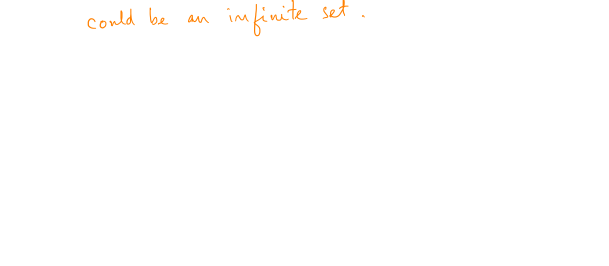 could be an infinite set.